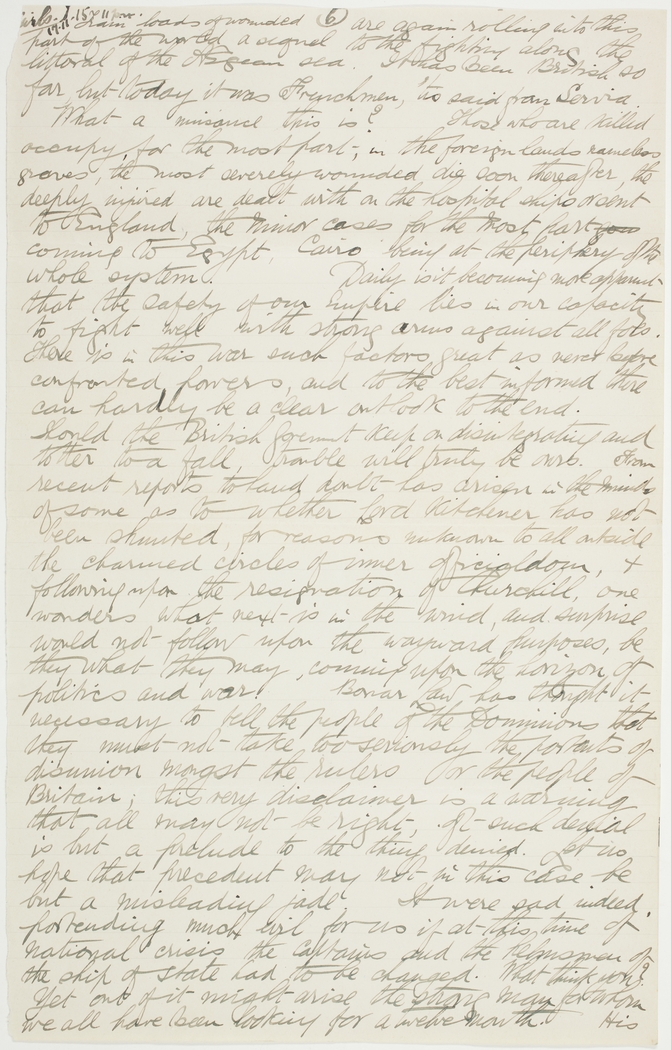 (6)
Train loads of wounded are again rolling into this
part of the world a sequel to the fighting along the
littoral of the Aegean sea. It has been British so
far but today it was Frenchmen, 'tis said from Servia.
What a nuisance this is? Those who are killed
occupy, for the most part, in the foreign lands nameless
graves, the most severely wounded die soon thereafter, the
deeply injured are dealt with on the hospital ships or sent
to England, the minor cases for the most part
coming to Egypt, Cairo being at the periphery of the
whole system. Daily is it becoming more apparent
that the safety of our empire lies in our capacity
to fight well with strong arms against all fools.
There is in this war such factors, great as never before
confronted powers, and to the best informed there
can hardly be a clear outlook to the end.
Should the British Government keep on disintegrating and
totter to a fall, trouble will truly be ours. From
recent reports to hand doubt has arisen in the minds
of some as to whether Lord Kitchener has not
been shunted, for reasons unknown to all outside
the charmed circles of inner officialdom, &
following upon the resignation of Churchill, one
wonders what next is in the wind, and surprise
would not follow upon the wayward purposes, be
they what they may, coming upon the horizon of
politics and war. Bonar Law has thought it
necessary to tell the people of the Dominions that
they must not take too seriously the portents of
disunion mongst the rulers or the people of
Britain; this very disclaimer is a warning
that all may not be right, oft such denial
is but a prelude to the thing denied. Let us
hope that precedent may not in this case be
but a misleading jade. It were sad indeed,
portending much evil for us if at this time of
national crisis the captains and the helmsmen of
the ship of state had to be changed. What think you?
Yet out of it might arise the strong man for whom
we all have been looking for a twelve month. His